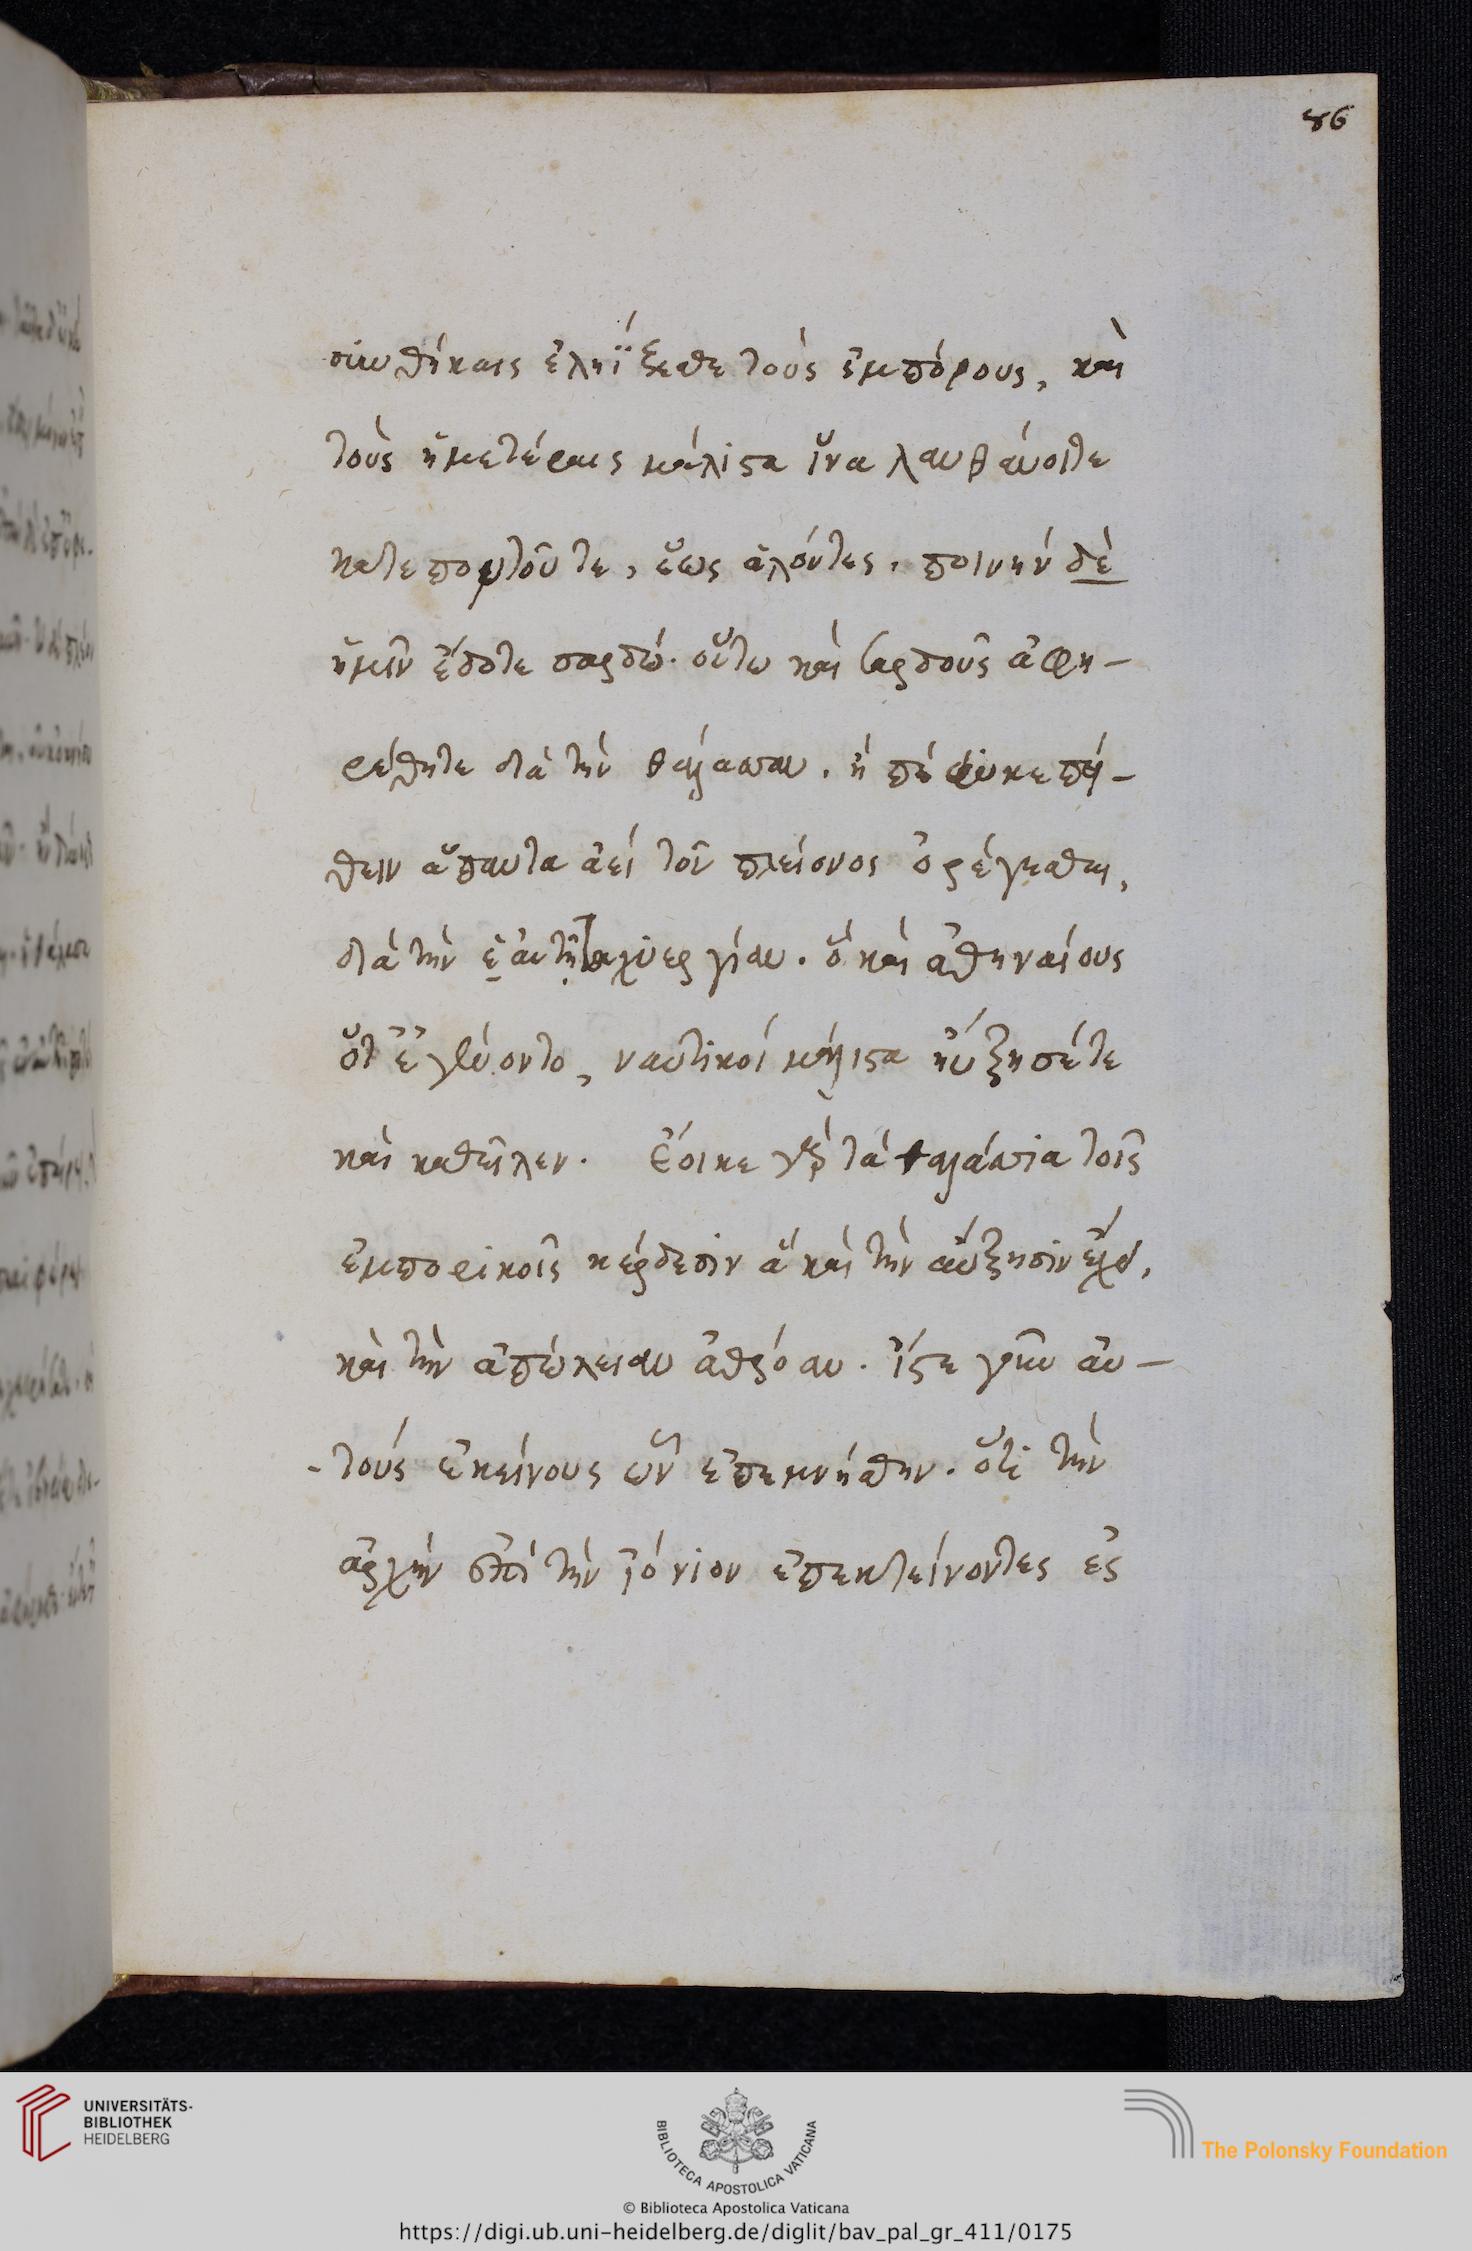 86
συνθήκαις ἐληΐξεσθε τοὺς ἐμπόρους, καὶ
τοὺς ἡμετέρους μάλιστα ἵνα λανθάνοιτε
κατεποντοῦτε, ἕως ἁλόντες. ποινὴν δὲ
ἡμῖν ἔδοτε σαρδώ. οὕτω καὶ σαρδοῦς ἀφη-
ρέθητε διὰ τὴν θάλασσαν. ἣ πέφυκε πεί-
θειν ἅπαντα ἀεὶ τοῦ πλείονος ὀρέγεσθαι,
διὰ τὴν ἐν αὐτῇ ταχυεργίαν. ὃ καὶ ἀθηναίους
ὅτ' ἐγένοντο, ναυτικοὶ μάλιστα ηὔξησέ τε
καὶ καθεῖλεν. Ἔοικε γὰρ τὰ θαλάσσια τοῖς
ἐμπορικοῖς κέρδεσιν ἃ καὶ τὴν αὔξησιν ἔχει,
καὶ τὴν ἀπώλειαν ἀθρόαν. ἴστε γοῦν αὐ-
-τοὺς ἐκείνους ὧν ἐπεμνήσθην. ὅτι τὴν
ἀρχὴν ἐπὶ τὴν ἰόνιον ἐπεκτείνοντες ἐς
UNIVERSITÄTS-
BIBLIOTHEK
HEIDELBERG
BIBLIOTECA APOSTOLICA VATICANA
The Polonsky Foundation
© Biblioteca Apostolica Vaticana
https://digi.ub.uni-heidelberg.de/diglit/bav_pal_gr_411/0175